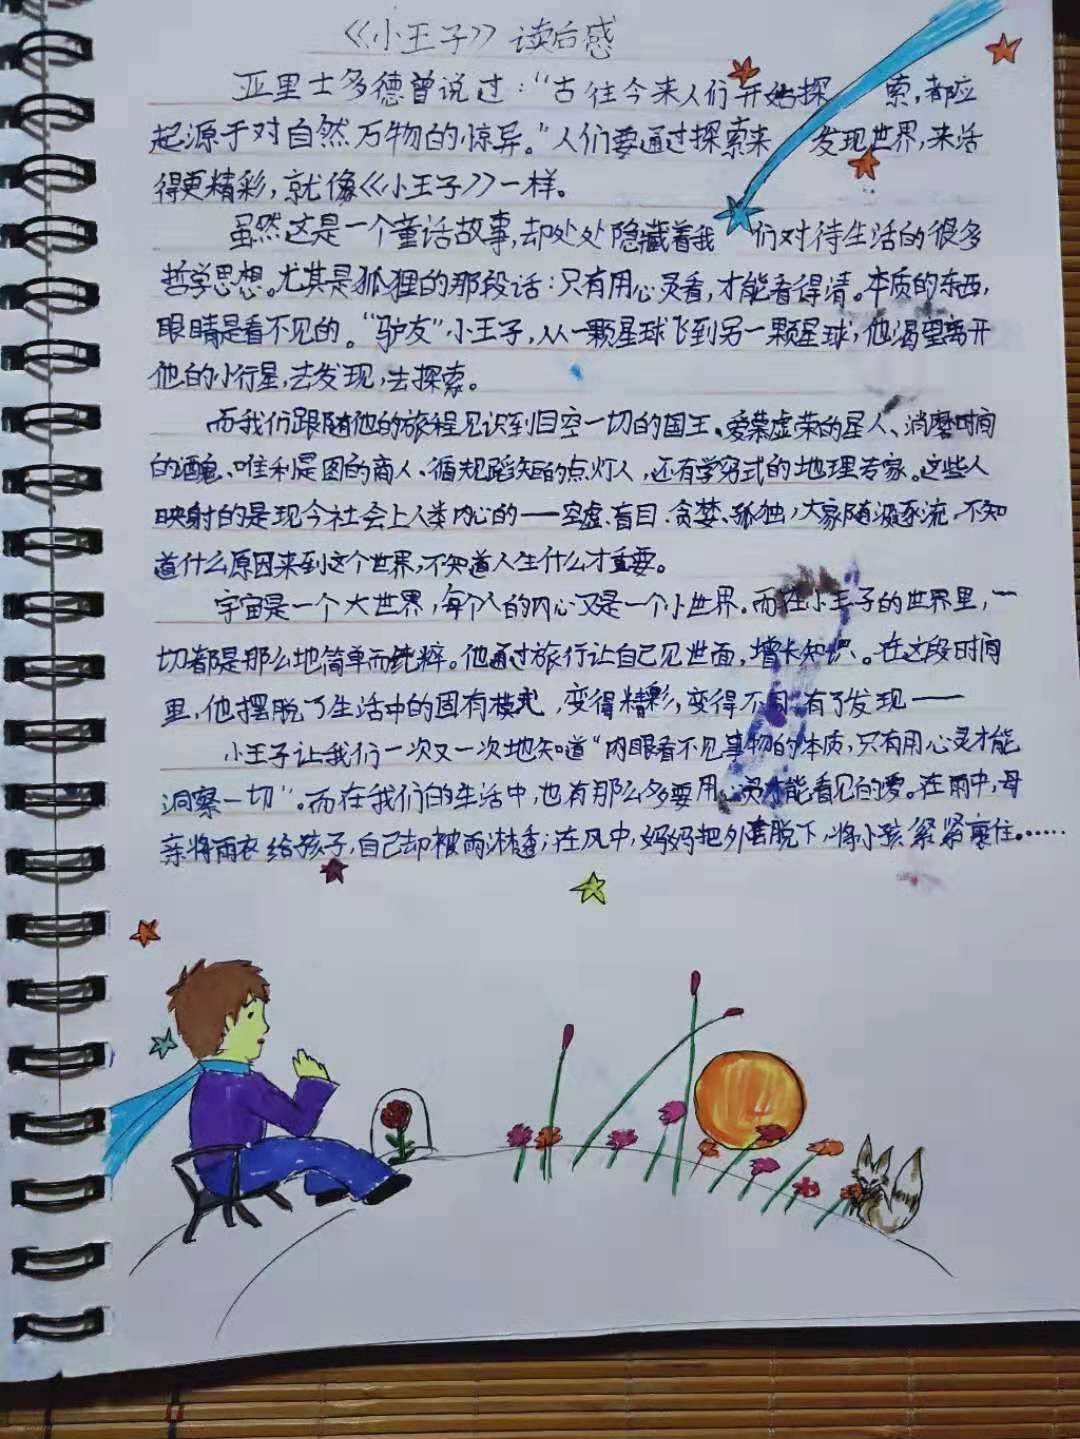 《小王子》读后感
亚里士多德曾说过：“古往今来人们开始探索，都应
起源于对自然万物的惊异。”人们要通过探索来发现世界，来活
得更精彩，就像《小王子》一样。
虽然这是一个童话故事，却处处隐藏着我们对待生活的很多
哲学思想。尤其是狐狸的那段话：只有用心灵看，才能看得清。本质的东西，
眼睛是看不见的。“驴友”小王子，从一颗星球飞到另一颗星球，他渴望离开
他的小行星，去发现，去探索。
而我们跟随他的旅程见识到目空一切的国王、爱慕虚荣的星人、消磨时间
的酒鬼、唯利是图的商人、循规蹈矩的点灯人，还有学究式的地理专家。这些人
映射的是现今社会上人类内心的——空虚、盲目、贪婪、孤独，大家随波逐流，不知
道什么原因来到这个世界，不知道人生什么才重要。
宇宙是一个大世界，每个人的内心又是一个小世界。而在小王子的世界里，一
切都是那么地简单而纯粹。他通过旅行让自己见世面，增长知识。在这段时间
里，他摆脱了生活中的固有模式，变得精彩，变得不同 有了发现——
小王子让我们一次又一次地知道“肉眼看不见事物的本质，只有用心灵才能
洞察一切”。而在我们的生活中，也有那么多要用心灵才能看见的爱。在雨中，母
亲将雨衣给孩子，自己却被雨淋透；在风中，妈妈把外套脱下，将小孩紧紧裹住。……